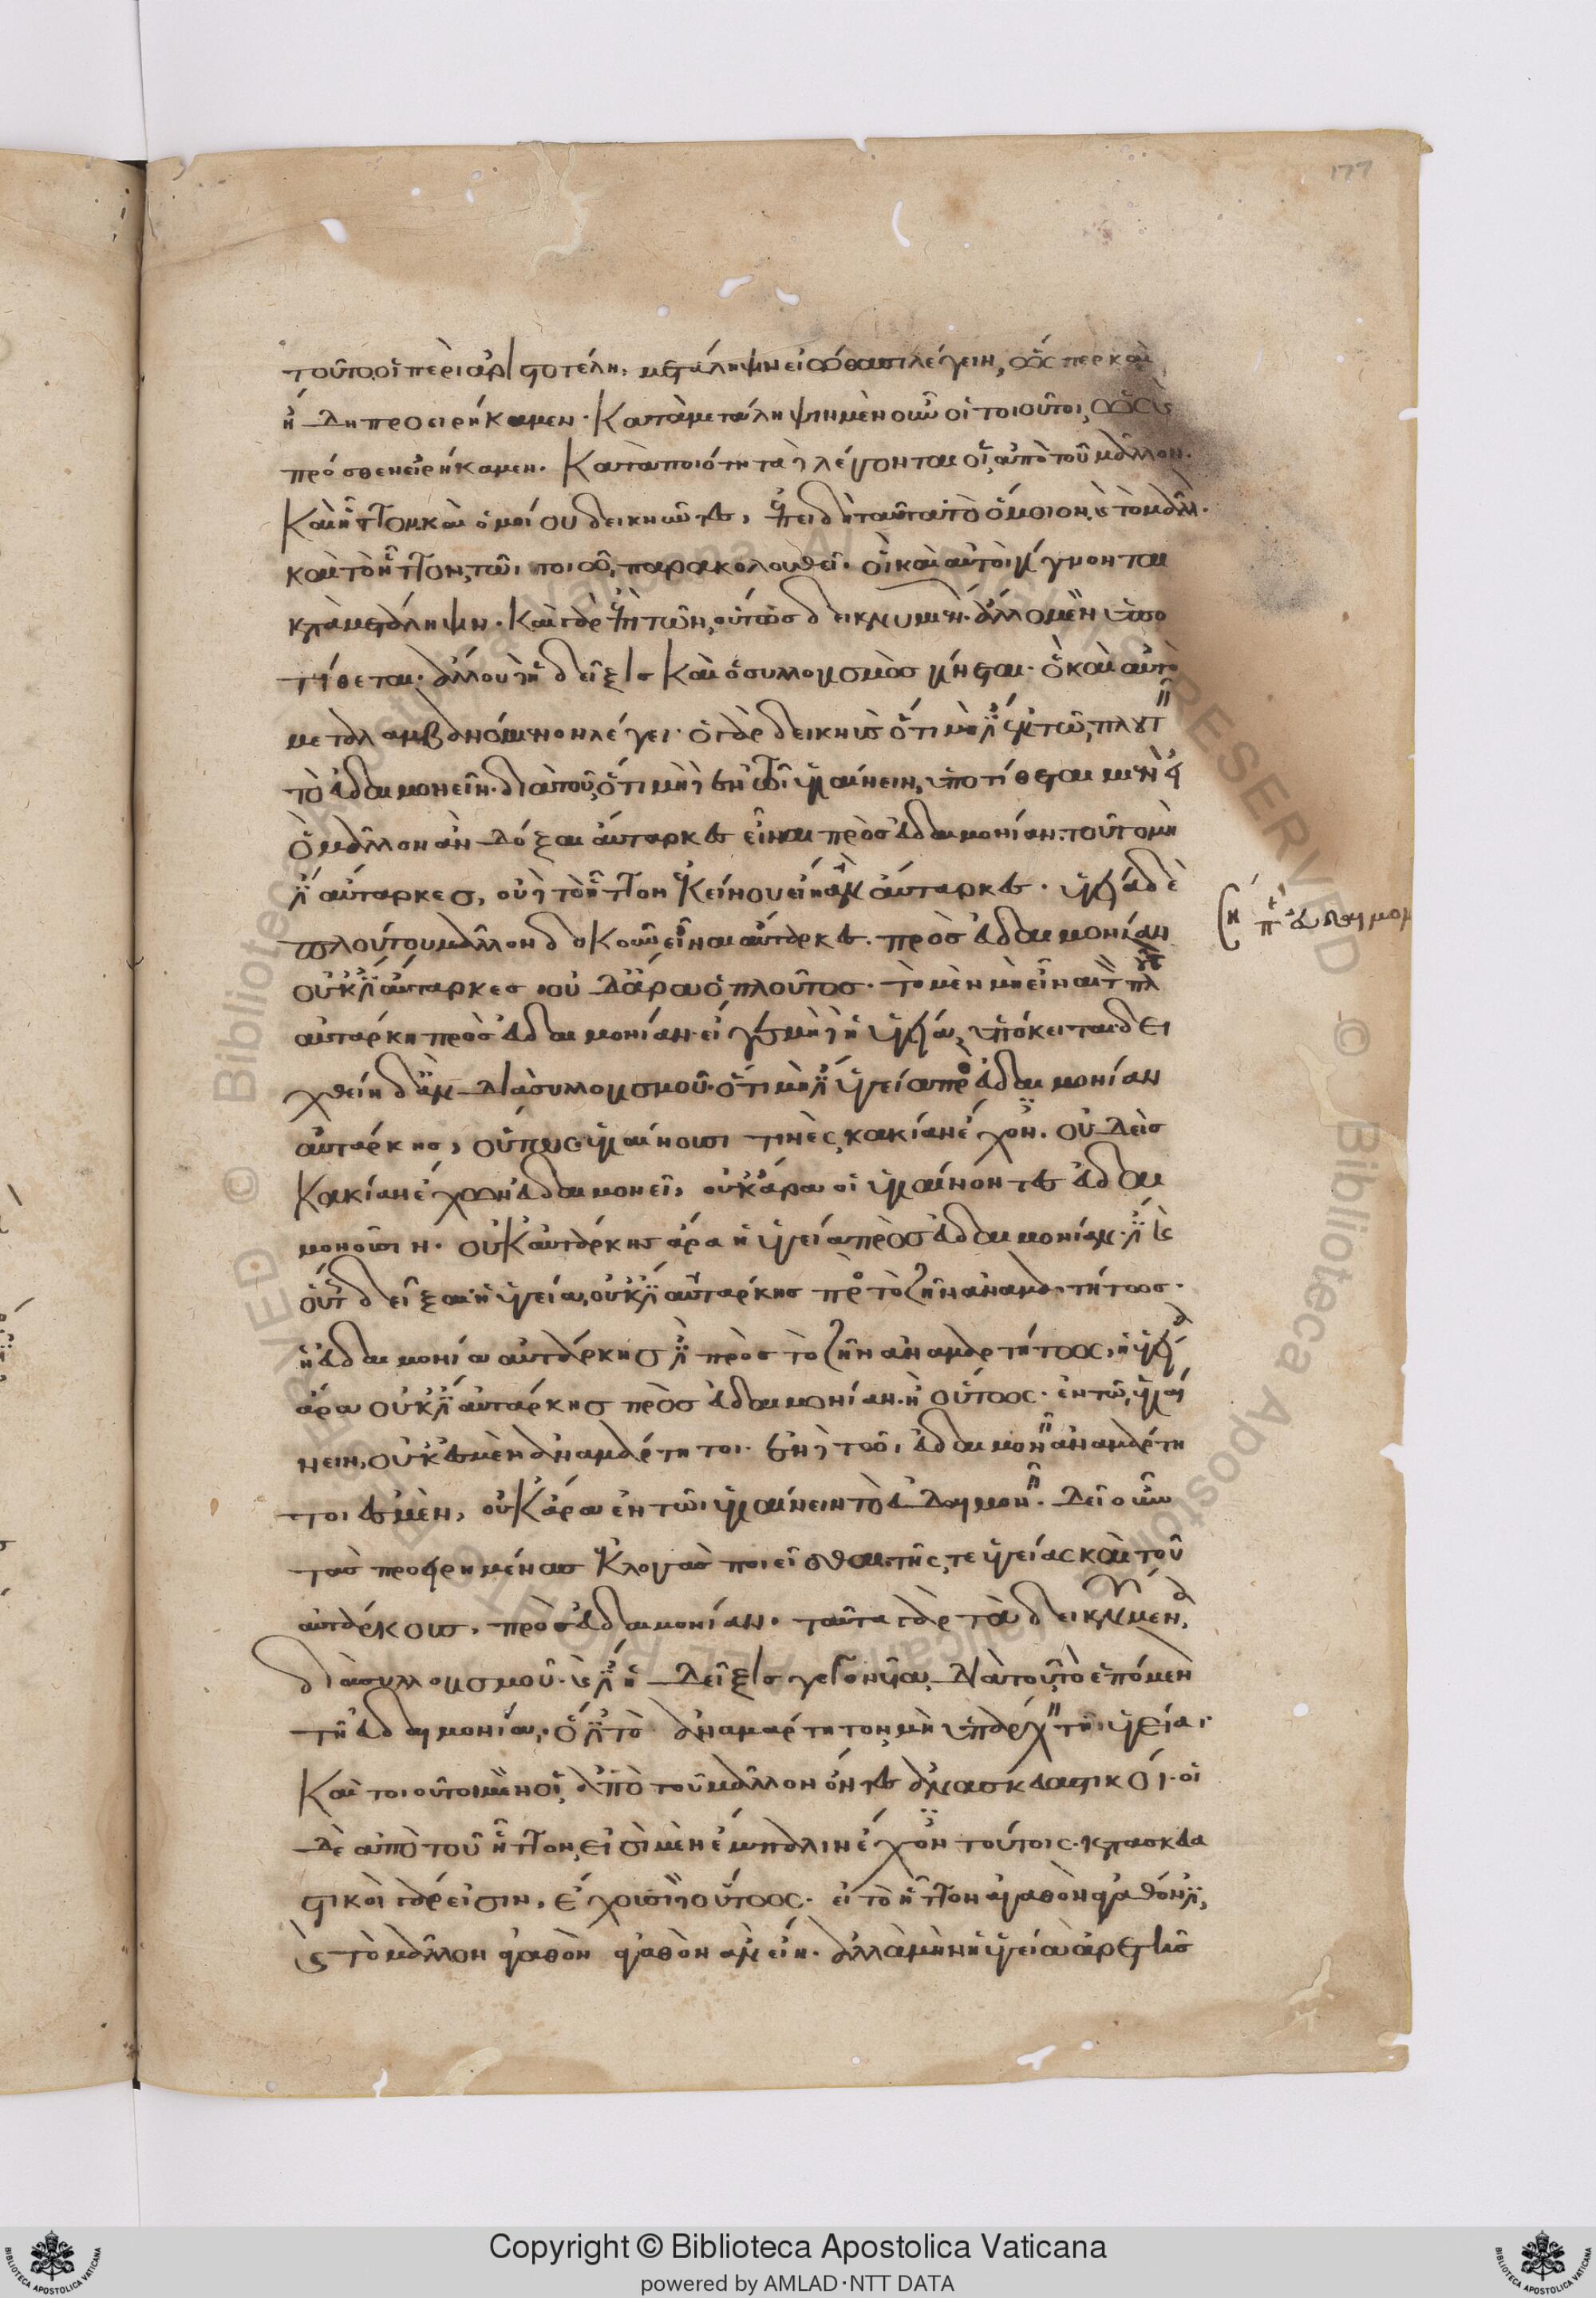 177
τοῦτο οἱ περὶ ἀριστοτέλη, μετάληψιν εἰώθασι λέγειν, ὡς περ καὶ
ἤδη προειρήκαμεν. Κατὰ μετάληψιν μὲν οὖν οἱ τοιοῦτοι, ὡς
πρόσθεν εἰρήκαμεν. Κατὰ ποιότητα δὲ λέγονται οἱ ἀπὸ τοῦ μᾶλλον.
Καὶ ἧττον καὶ ὁμοίου δεικνῦντες, ἐπειδὴ ταῦτα τὸ ὅμοιον καὶ τὸ μᾶλλ.
καὶ τὸ ἧττον, τῶι ποιῶ, παρακολουθεῖ. οἳ καὶ αὐτοὶ γίγνονται
κατὰ μετάληψιν. Καὶ γὰρ ἐπὶ τῶν οὕτως δεικνυμένων ἄλλο μὲν ὑπο
τίθεται. ἄλλου δὲ ἡ δεῖξις καὶ ὁ συλλογισμὸς γίνεται. ὃ καὶ αὐτὸ
μεταλαμβανόμενον λέγει. ὁ γὰρ δεικνὺς ὅτι μή ἐστιν ἐν τῶ πλουτεῖν
τὸ εὐδαιμονεῖν. διὰ τοῦ, ὅτι μὴ δὲ ἐν τῶι ὑγιαίνειν, ὑποτίθεται μὲν εἰ
ὃ μᾶλλον ἂν δόξαι αὔταρκες εἶναι πρὸς εὐδαιμονίαν. τοῦτο μή
ἐστιν αὔταρκες, οὐδὲ τὸ ἧττον ἐκείνου εἴη ἂν αὔταρκες. ὑγεία δὲ
πλούτου μᾶλλον δοκοῦσα εἶναι αὐτάρκης πρὸς εὐδαιμονίαν
οὐκ ἔστιν αὐτάρκες οὐδ' ἄρα ὁ πλοῦτος. τὸ μὲν μὴ εἶναι τὸν πλοῦτον
αὐτάρκη πρὸς εὐδαιμονίαν. εἴ γε μὴ δὲ ἡ ὑγεία, ὑπόκειται. δει
χθείη δ' ἂν διὰ συλλογισμοῦ. ὅτι μή ἐστιν ὑγεία πρὸς εὐδαιμονίαν
αὐτάρκης, οὕτως. ὑγιαίνουσι τινὲς κακίαν ἔχοντες. οὐδεὶς
κακίαν ἔχων εὐδαιμονεῖ, οὐκ ἄρα οἱ ὑγιαίνοντες εὐδαι
μονοῦσιν. οὐκ αὐτάρκης ἄρα ἡ ὑγεία πρὸς εὐδαιμονίαν. ἔστι καὶ
οὕτω δεῖξαι. ἡ ὑγεία, οὐκ ἔστιν αὐτάρκης πρὸς τὸ ζῆν ἀναμαρτήτως.
ἡ εὐδαιμονία αὐτάρκης ἐστὶ πρὸς τὸ ζῆν ἀναμαρτήτως, ἡ ὑγεία
ἄρα οὐκ ἔστιν αὐτάρκης πρὸς εὐδαιμονίαν. ἢ οὕτως. ἐν τῶι ὑγιαί
νειν, οὐκ ἐσμὲν ἀναμάρτητοι. ἐν δὲ τῶι εὐδαιμονεῖν ἀναμάρτη
τοι ἐσμὲν, οὐκ ἄρα ἐν τῶι ὑγιαίνειν τὸ εὐδαιμονεῖν. δεῖ οὖν
τὰς προειρημένας ἐκλογὰς ποιεῖσθαι, τῆς τε ὑγείας καὶ τοῦ
αὐτάρκους πρὸς εὐδαιμονίαν. ταῦτα γὰρ τὰ δεικνύμενα
διὰ συλλογισμοῦ. καὶ ἔστιν ἡ δεῖξις γεγονυῖα, διὰ τοῦ τὸ ἑπόμενον
τῆ εὐδαιμονία, ὅ ἐστι τὸ ἀναμάρτητον, μὴ ὑπάρχειν τῆι ὑγεία.
Καὶ τοιοῦτοι μὲν οἱ ἀπὸ τοῦ μᾶλλον ὄντες ἀνασκευαστικοί. οἱ
δὲ ἀπὸ τοῦ ἧττον, εἰσὶ μὲν ἔμπαλιν ἔχοντες τούτοις. κατασκευα
στικοὶ γάρ εἰσιν. ἔχουσι δὲ οὕτως. εἰ τὸ ἧττον ἀγαθὸν ἀγαθόν ἐστι,
καὶ τὸ μᾶλλον ἀγαθὸν ἀγαθὸν ἂν εἴη. ἀλλὰ μὴν ἡ ὑγεία ἀρετῆς
Copyright © Biblioteca Apostolica Vaticana
powered by AMLAD·NTT DATA